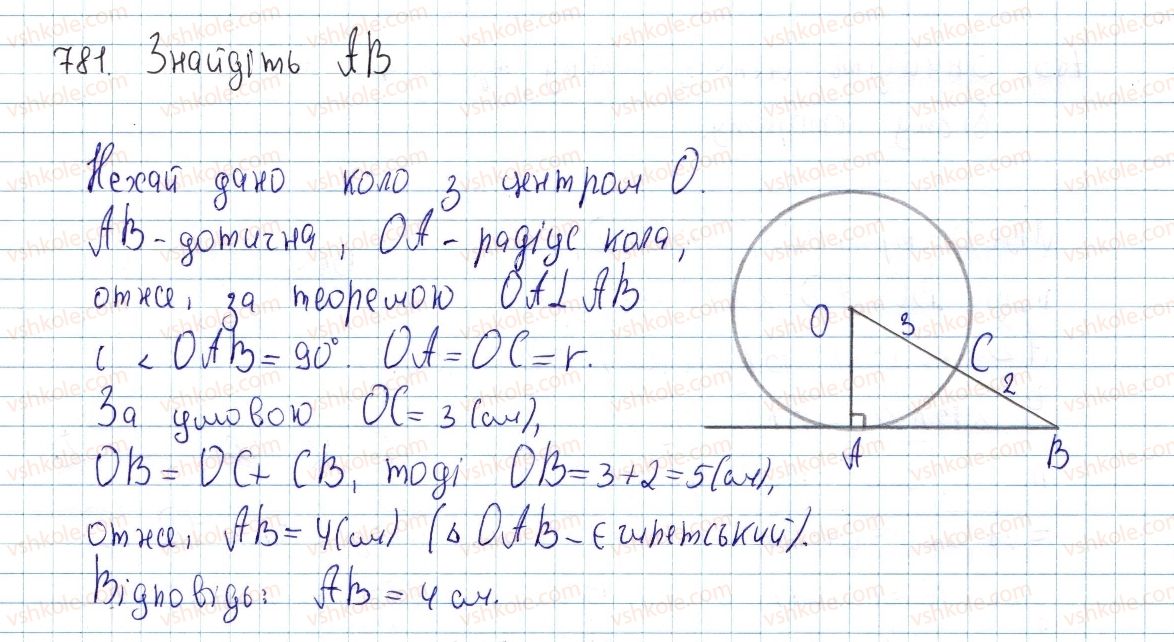 781. Знайдіть AB
Нехай дано коло з центром O.
AB - дотична, OA - радіус кола,
отже, за теоремою OA⊥AB
і < OAB = 90°. OA = OC = r.
За умовою OC = 3 (см),
OB = OC + CB, тоді OB = 3 + 2 = 5 (см),
отже, AB = 4 (см) (Δ OAB - єгипетський).
Відповідь: AB = 4 см.
O
3
C
2
A
B
vshkole.com